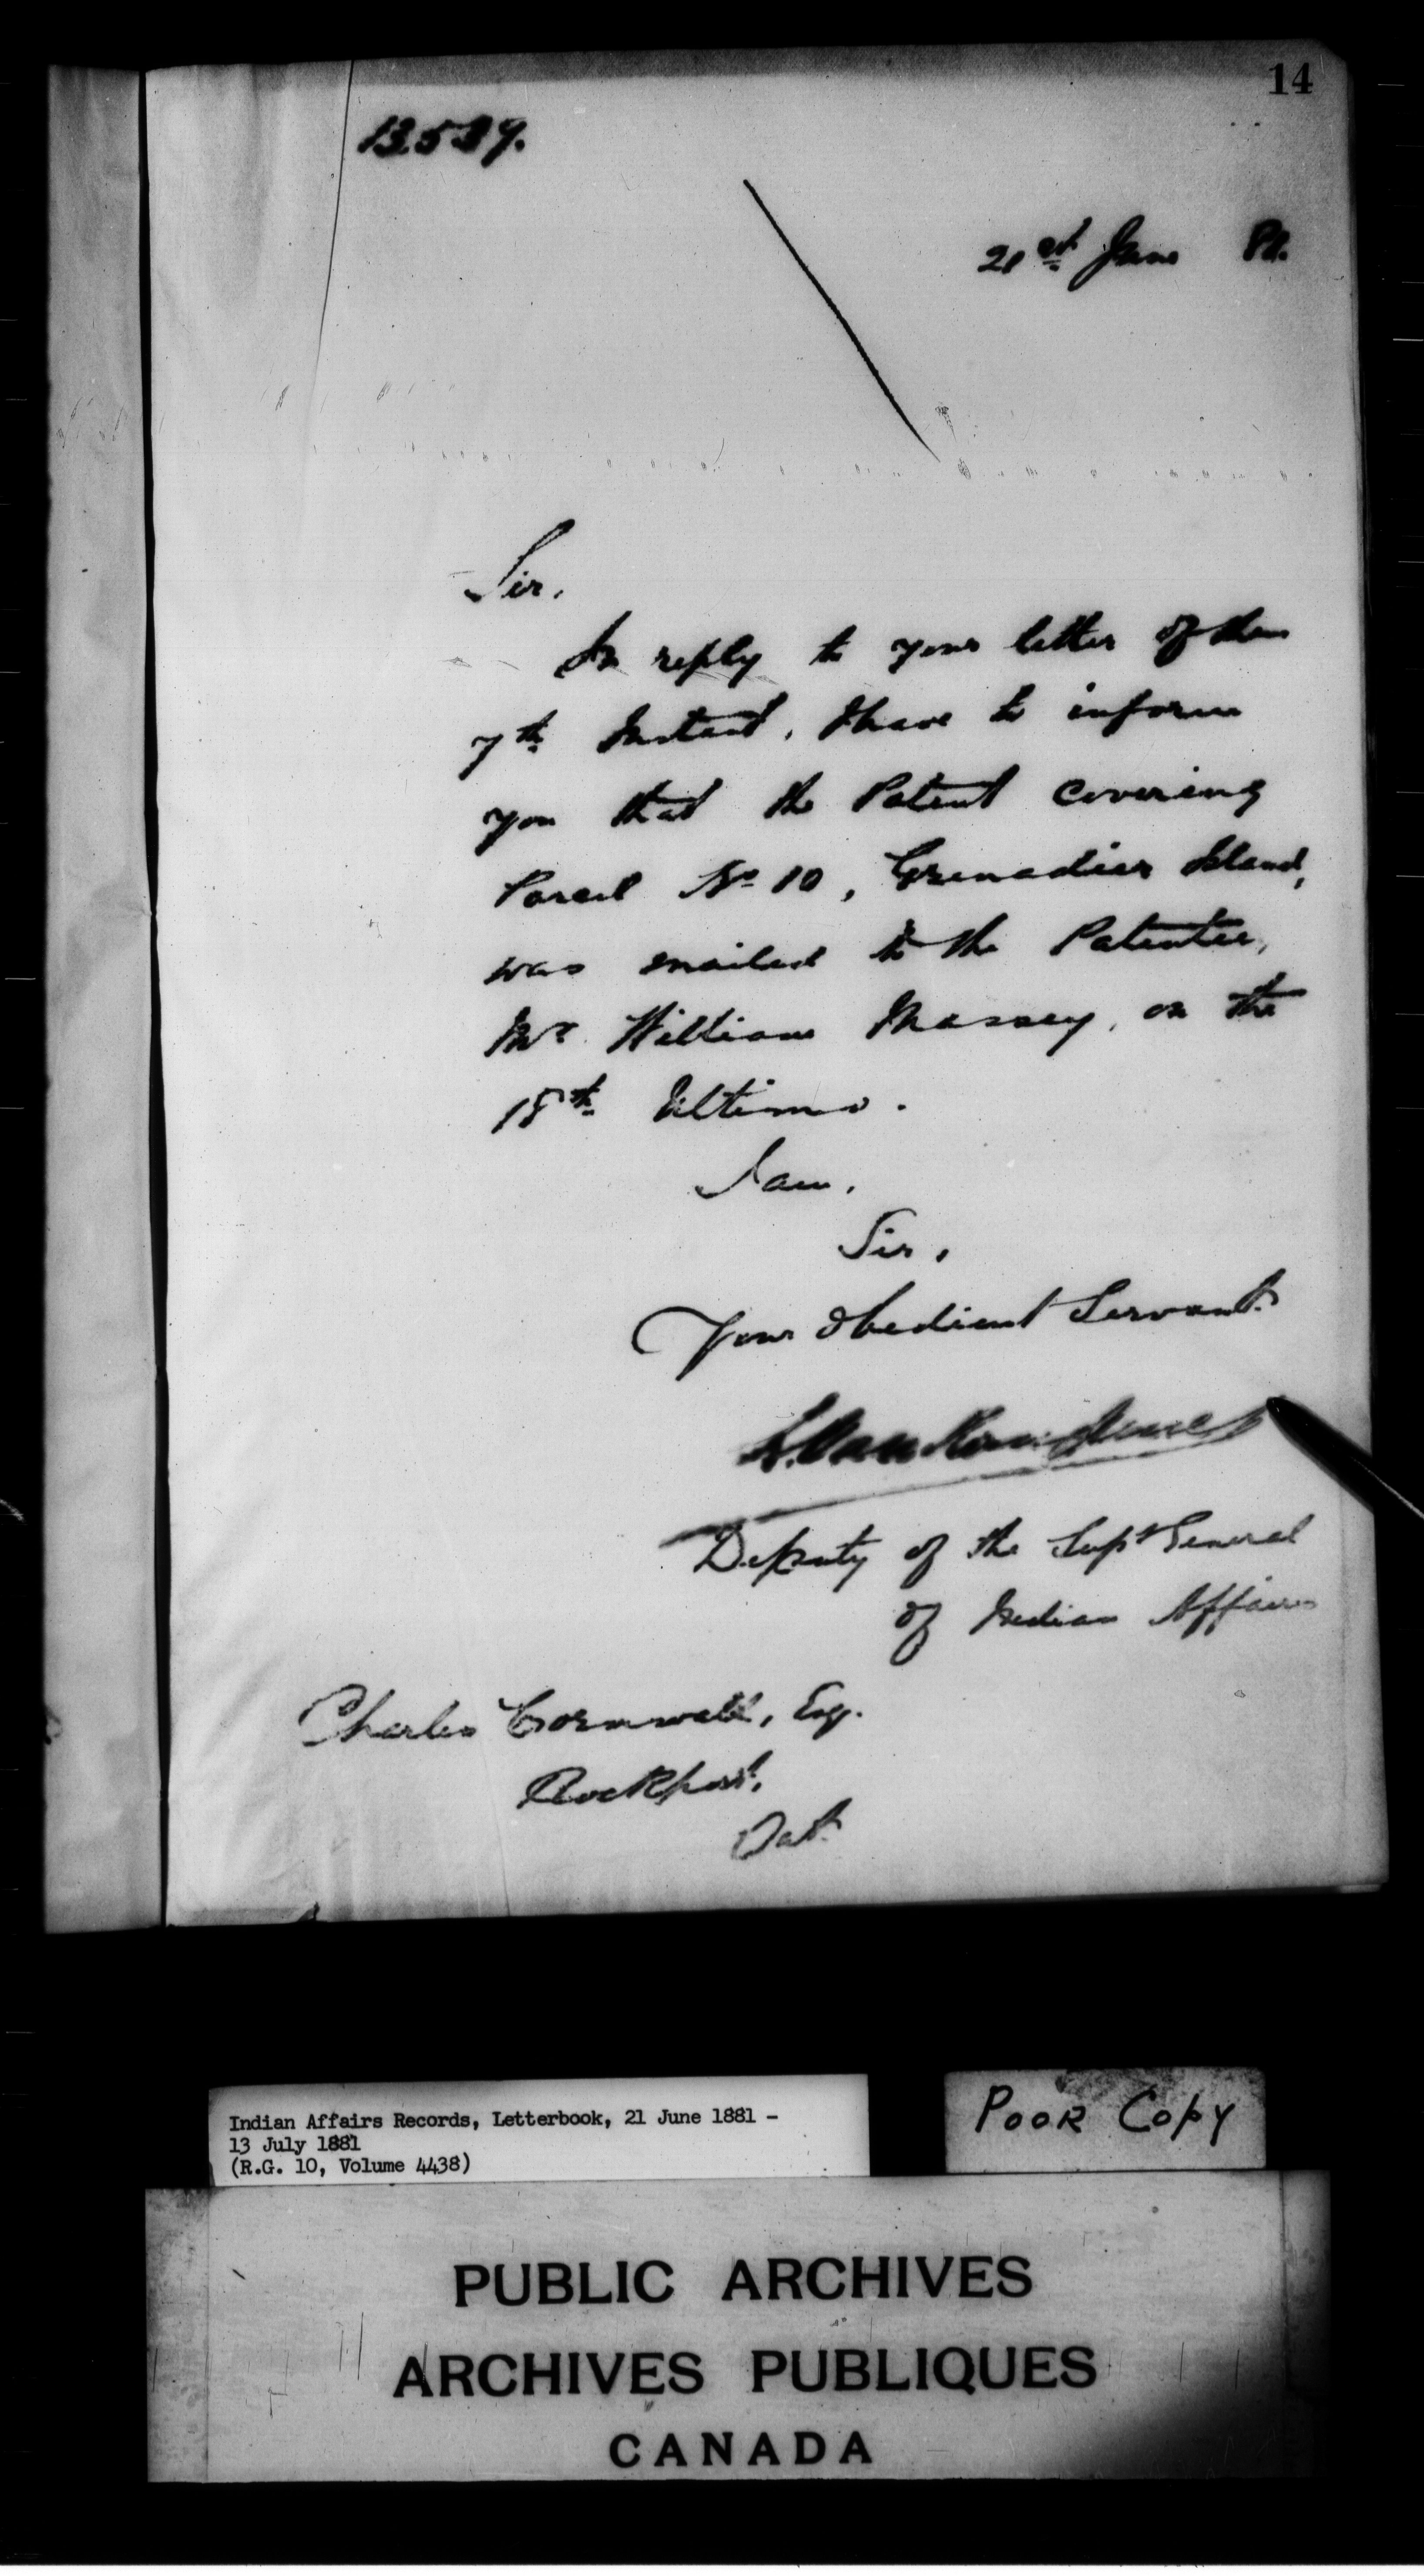 14
13.539.
21st June 81.
Sir,
In reply to your letter of the
7th Instant, I have to inform
you that the Patent covering
Parcel No 10, Grenadier Island,
was mailed to the Patentee,
Mr William Massey, on the
18th Ultimo.
I am,
Sir,
Your obedient Servant.
L. VanKoughnet
Deputy of the Supt General
of Indian Affairs
Charles Cornwall, Esq.
Rockport,
Ont.
Indian Affairs Records, Letterbook, 21 June 1881 -
13 July 1881
(R.G. 10, Volume 4438)
POOR COPY
PUBLIC ARCHIVES
ARCHIVES PUBLIQUES
CANADA